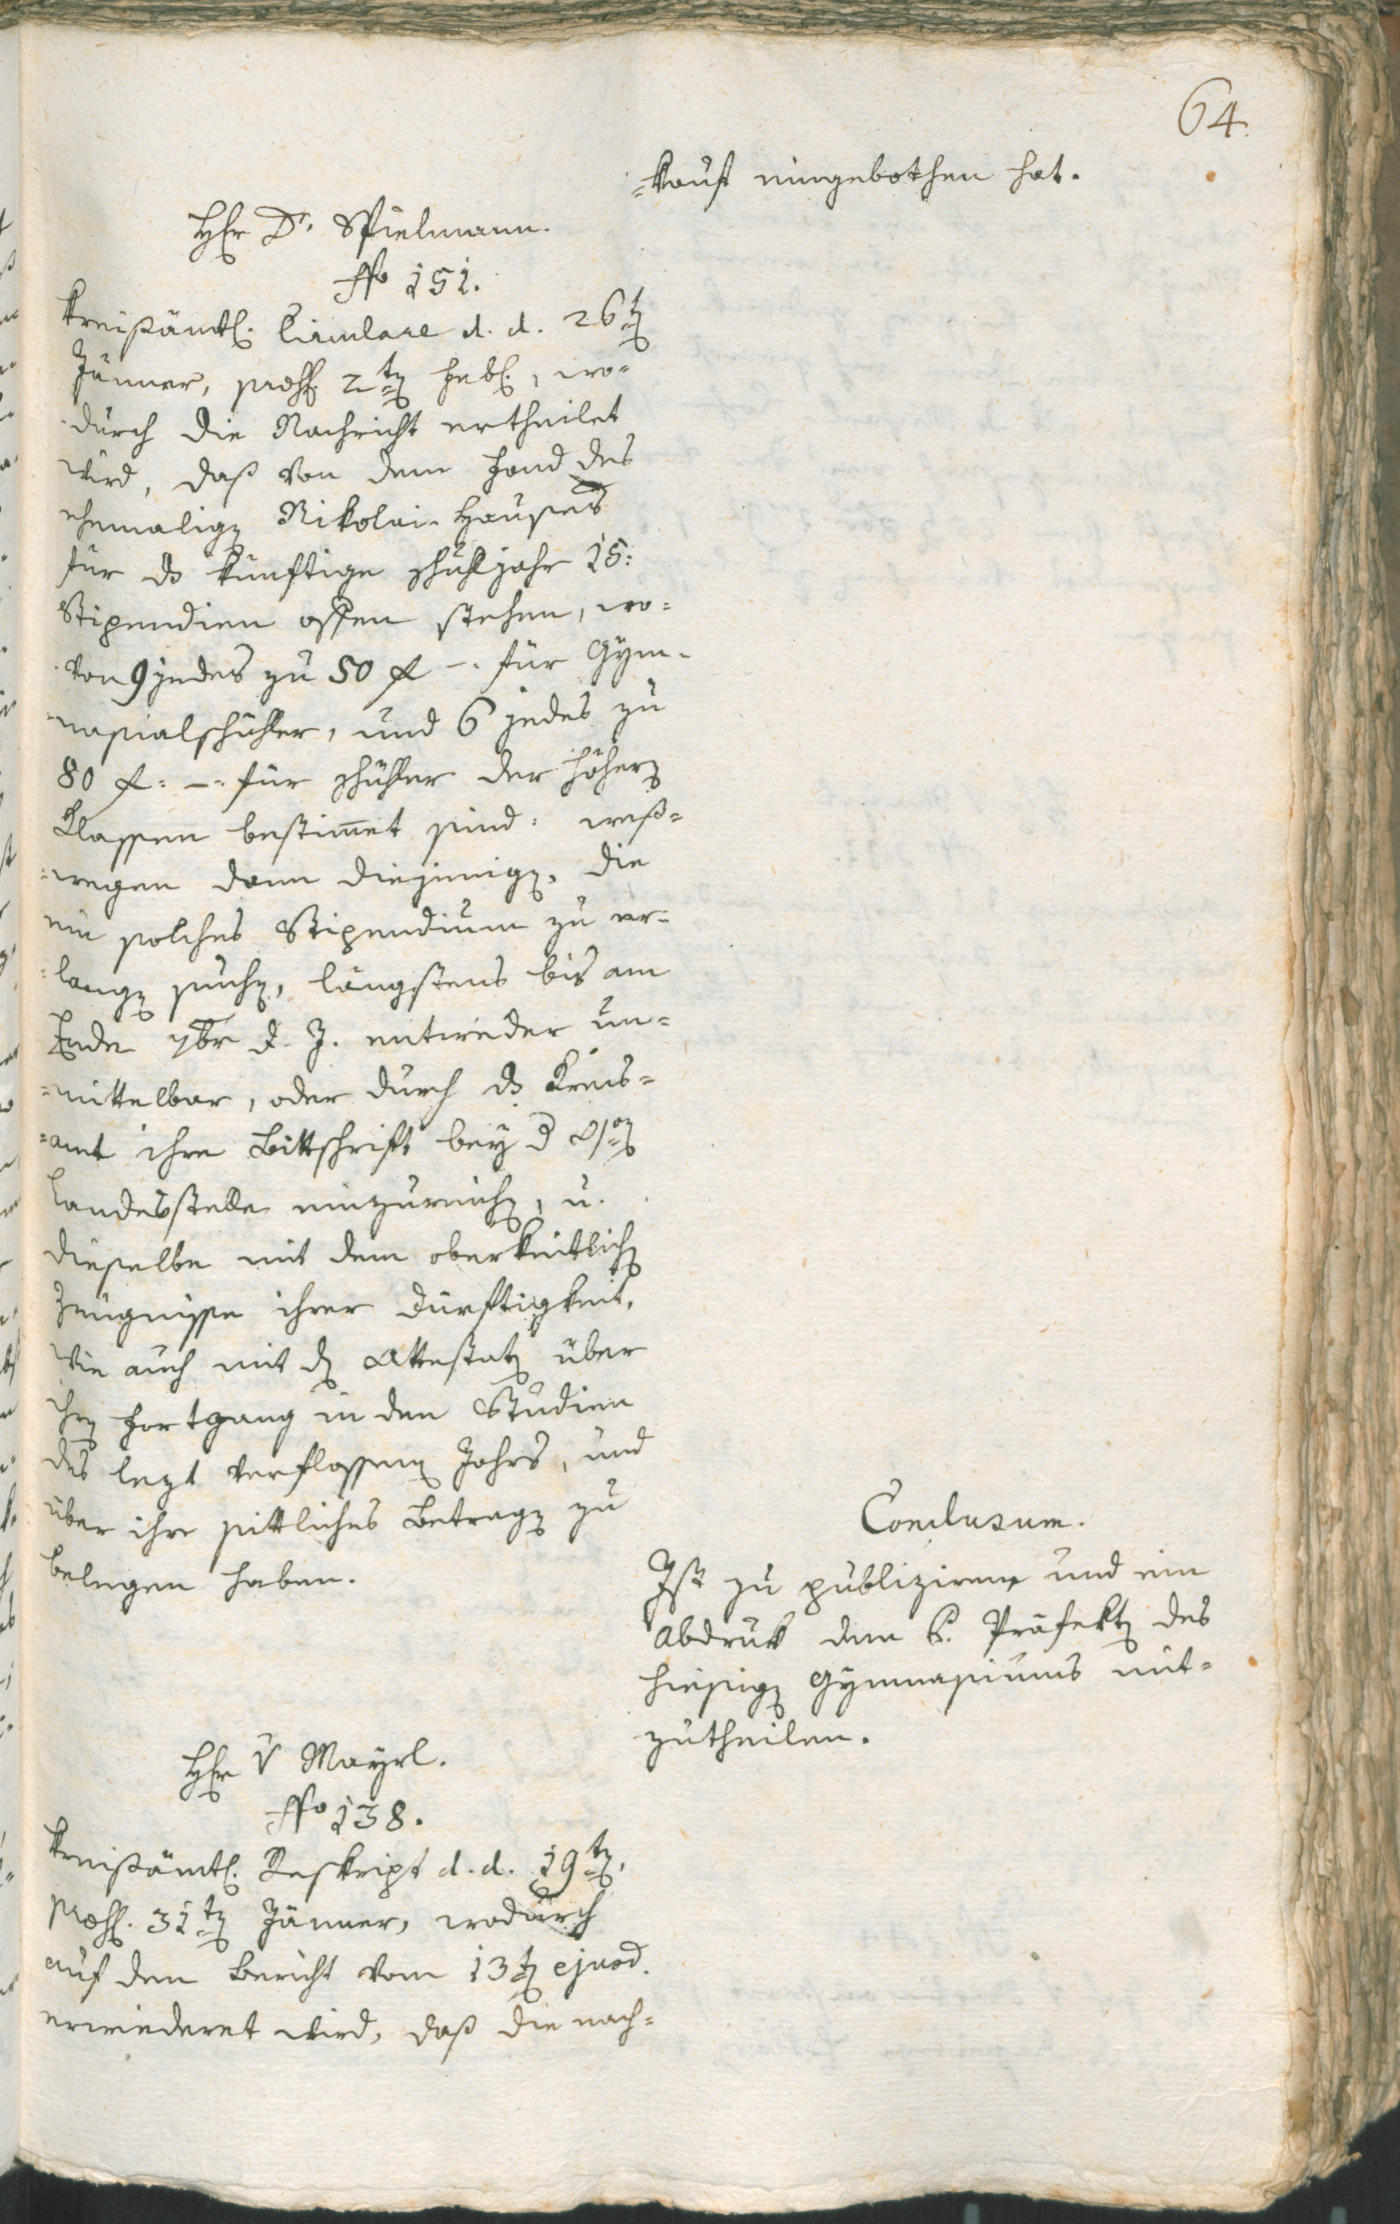 64.
=kauft eingebothen hat.
Hr Dr. Spielmann.
No 151.
Kreißämtl. Circulare d. d. 26ten
Jänner, præs. 2ten Febr., wo=
durch die Nachricht ertheilet
wird, daß von dem Fond des
ehemaligen Nikolai-Hauses
für das künftige Schuljahr 15:
Stipendien offen stehen, wo=
von 9 jedes zu 50 f –: für Gym=
nasialschühler, und 6 jedes zu
80 f: –: für Schühler der höhern
Klassen bestimmet sind: weß=
=wegen dann diejenigen, die
ein solches Stipendium zu er=
=langen suchen, längstens bis am
Ende 7br d. J. entweder un=
=mittelbar, oder durch das Kreis=
=amt ihre Bittschrift bey der
Landesstelle einzureichen, u.
dieselbe mit dem oberkeitlichen
Zeugnisse ihrer Dürftigkeit,
wie auch mit den Attestaten über
ihren Fortgang in den Studien
des lezt verflossenen Jahrs, und
über ihr sittliches Betragen zu
belegen haben.
Conclusum.
Ist zu publiziren und ein
Abdruk dem H. Präfekten des
hiesigen Gymnasiums mit=
zutheilen.
Hr v Mayrl.
No 138.
Kreißämtl. Reskript d. d. 19ten,
præs. 31ten Jänner, wodurch
auf den Bericht vom 13ten ejusd.
erwiederet wird, daß die nach=